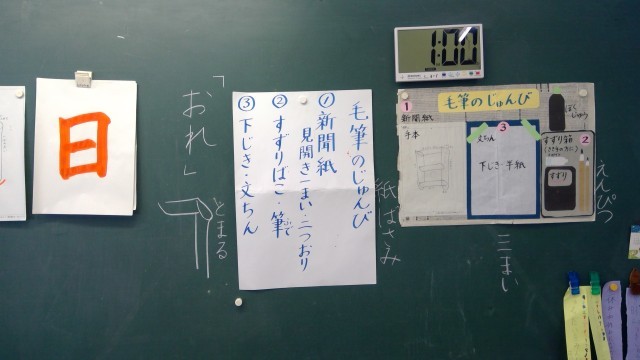 日
「おれ」
とまる
毛筆のじゅんび
①新聞紙
見開き一まい・二つおり
②すずりばこ・筆で
③下じき・文ちん
紙ばさみ
1:00
毛筆のじゅんび
1
新聞紙
手本
3
文ちん
下じき・半紙
ぼくじゅう
2
すずり箱
すずり
えんぴつ
三まい